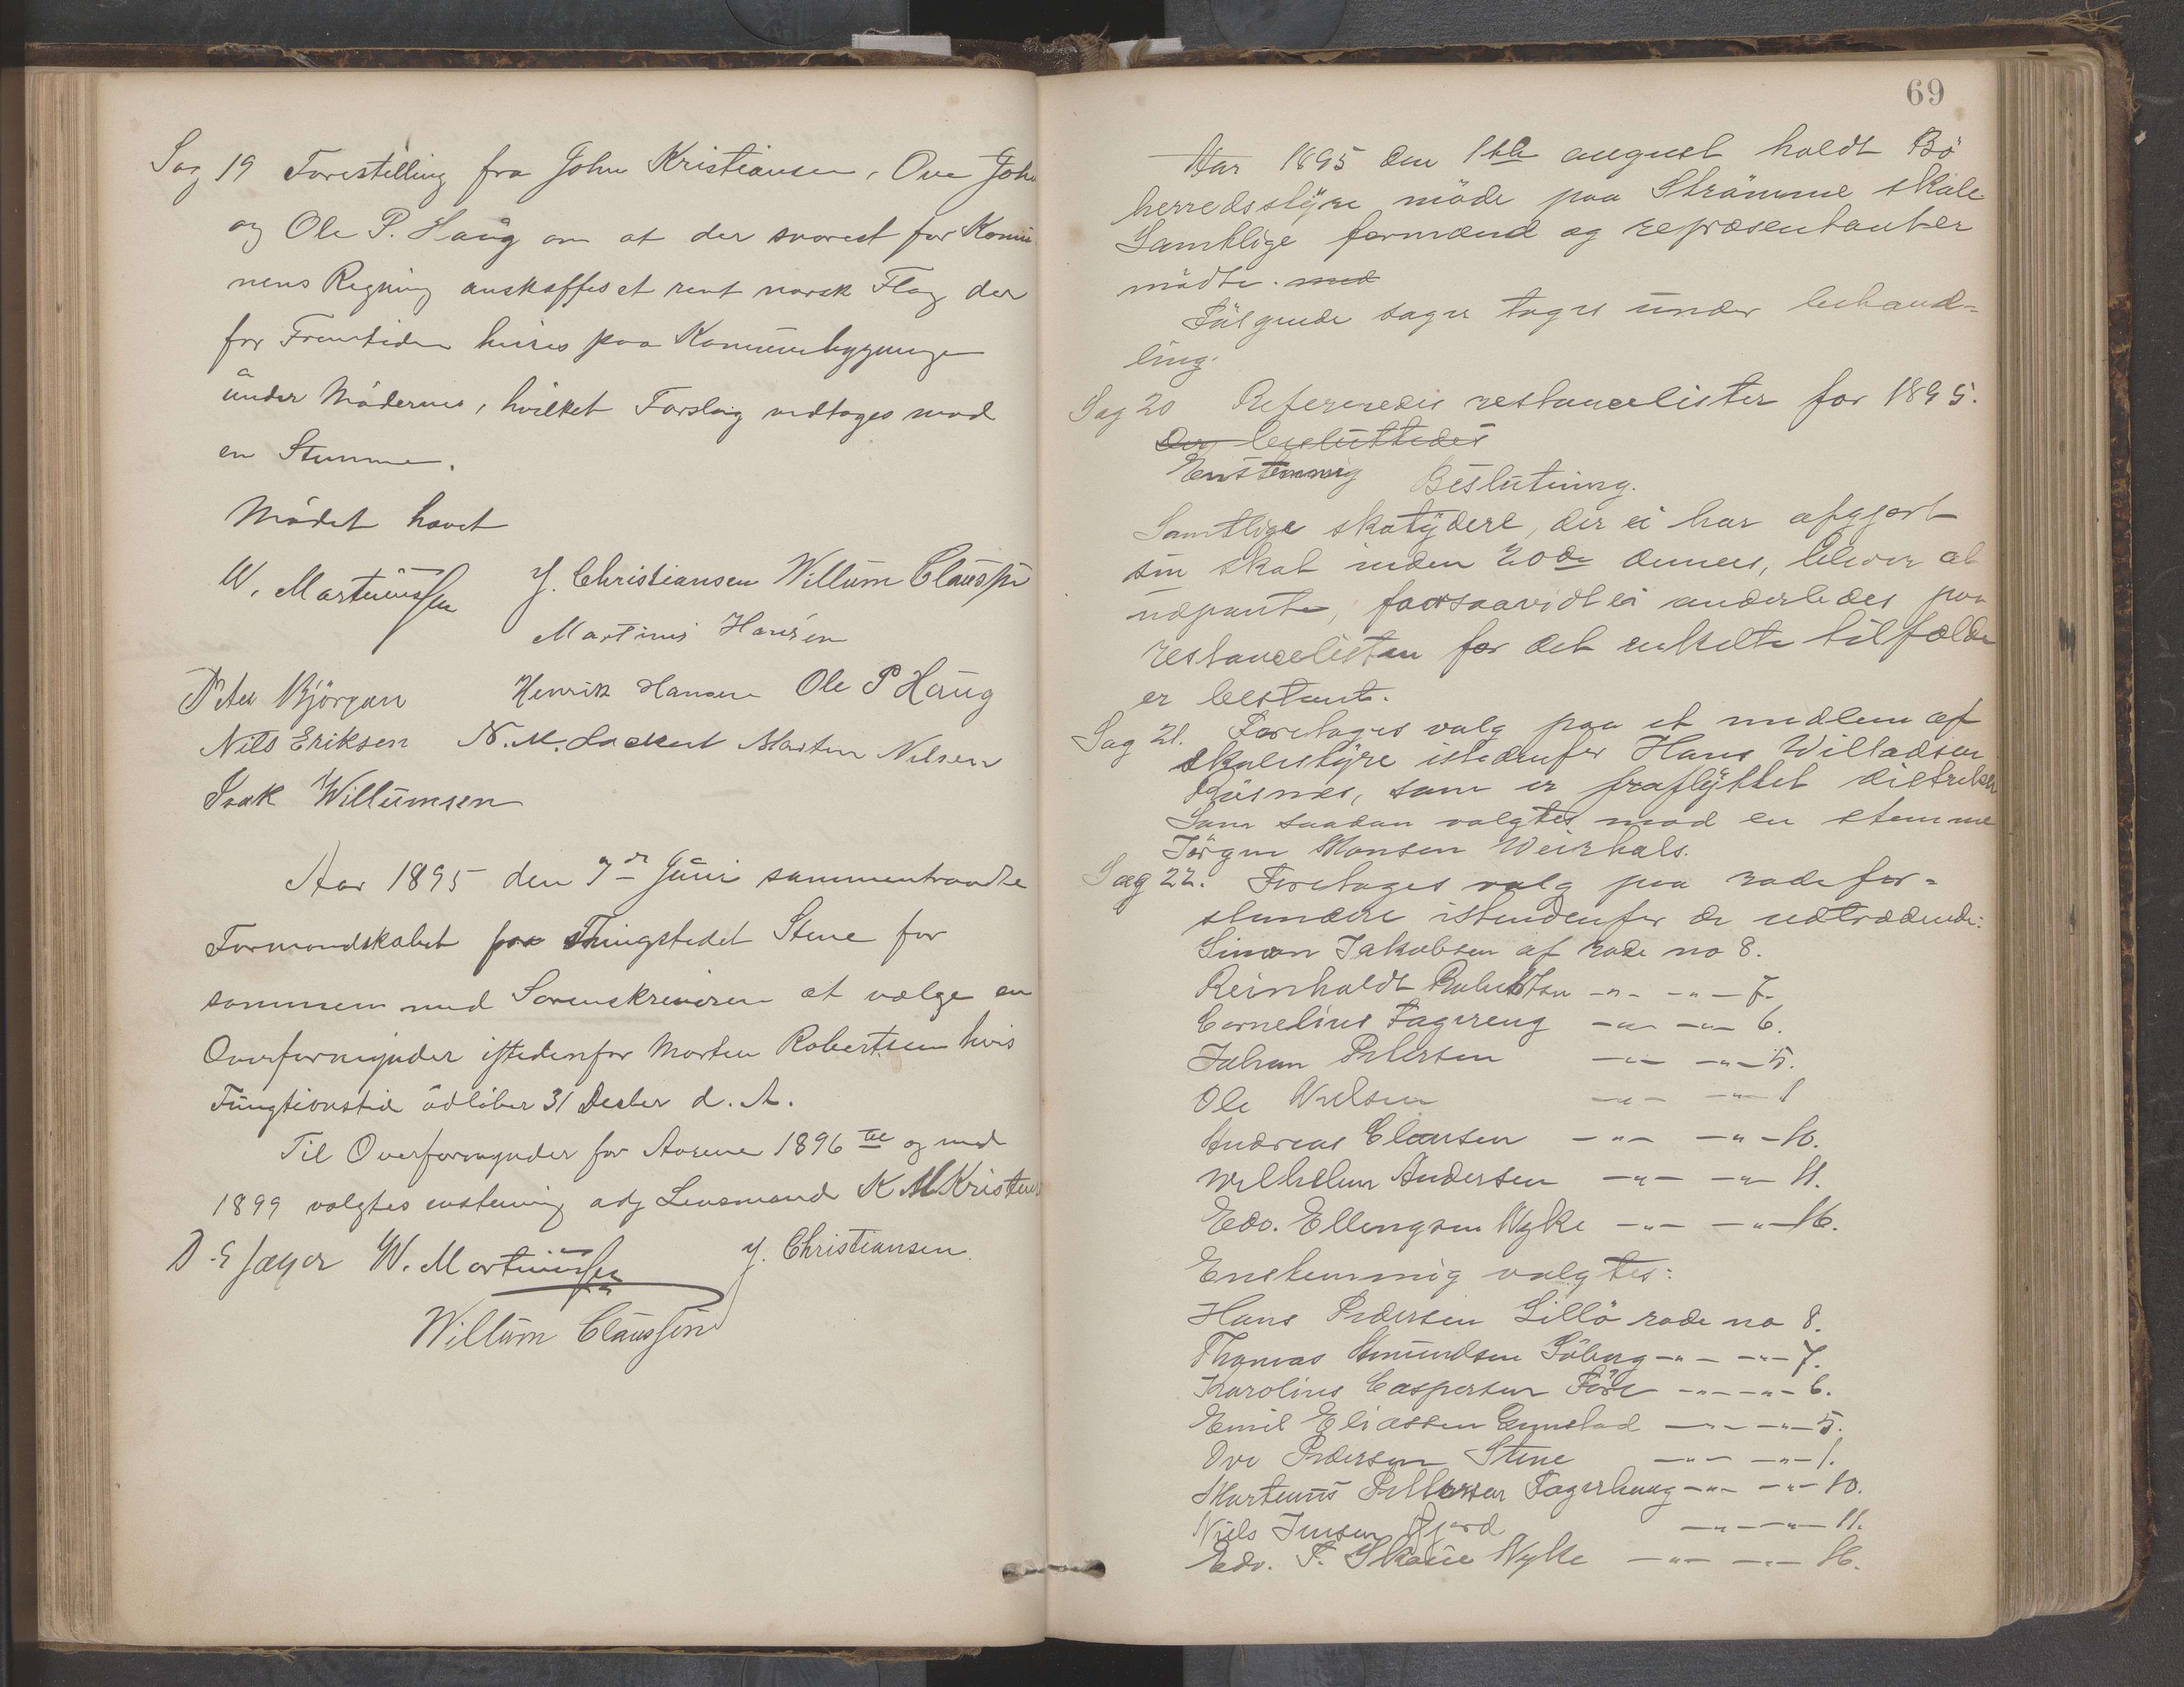 Sag 19 Forestilling fra John Kristiansen, Ove John
og Ole P. Haug om at der snarest for Komū
nens Regning anskaffes et rent norsk Flag der
for Fremtiden heises paa Komunebygningen
under Möderne, hvilket Forslag vedtoges mod
en Stemme.
Mödet hævet
W. Martinussen J. Christiansen Willum Claussen
Martinus Hansen
Peter Björgan Henrik Hansen Ole P Haug
Nils Eriksen N. M. Lockert Morten Nilsen
Isak Willumsen
Aar 1895 den 7de Juni sammentraadte
Formandskabet paa Thingstedet Stene for
sammen med Sorenskriveren at vælge en
Overformynder istedenfor Morten Robertsen hvis
Fungtionstid udlöber 31 Decber d. A.
Til Overformynder for Aarene 1896 til og med
1899 valgtes enstemig adj Lensmand K M Kristens
D. E Jæger W. Martinussen J. Christiansen
Willum Claussen
69
Aar 1895 den 1ste august holdt Bö
herredsstyre möde paa Strömme skole
Samtlige formænd og repræsentanter
mödte. med
Fölgende sager toges under behand-
ling.
Sag 20 Refereredes restancelister for 1895.
Der besluttedes
Enstemmig Beslutning.
Samtlige skatydere, der ei har afgjort
sin skat inden 20de dennes, bliver at
udpante, forsaavidt ei anderledes paa
restancelisten for det enkelte tilfælde
er bestemt.
Sag 21. Foretages valg paa et medlem af
skolestyre istedenfor Hans Willadsen
som er fraflyttet distriktet
Som saadan valgtes mod en stemme
Jörgen Monsen Veirhals.
Sag 22. Foretages valg paa rodefor-
standere istendenfor de udtrædende:
Simon Jakobsen af rode no 8.
Reinholdt Robertsen -"- -"- 7.
Cornelius Fagereng -"- -"- 6.
Johan Petersen -"- -"- 5.
Ole Nielsen -"- -"- 1
Andreas Clausen -"- -"- 10.
Wilhelm Andersen -"- -"- 11.
Edv. Ellingsen Nykke -"- -"- 16.
Enstemmig valgtes:
Hans Pedersen Lillö rode no 8.
Thomas Amundsen Söberg -"- -"- 7.
Karolius Caspersen Före -"- -"- 6.
Emil Eliassen Gunstad -"- -"- 5.
Ove Pedersen Stene -"- -"- 1.
Martinus Pettersen Fagerhaug -"- -"- 10.
Niels Jensen Fjord -"- -"- 11.
Edv. F. Skoue Nykke -"- -"- 16.